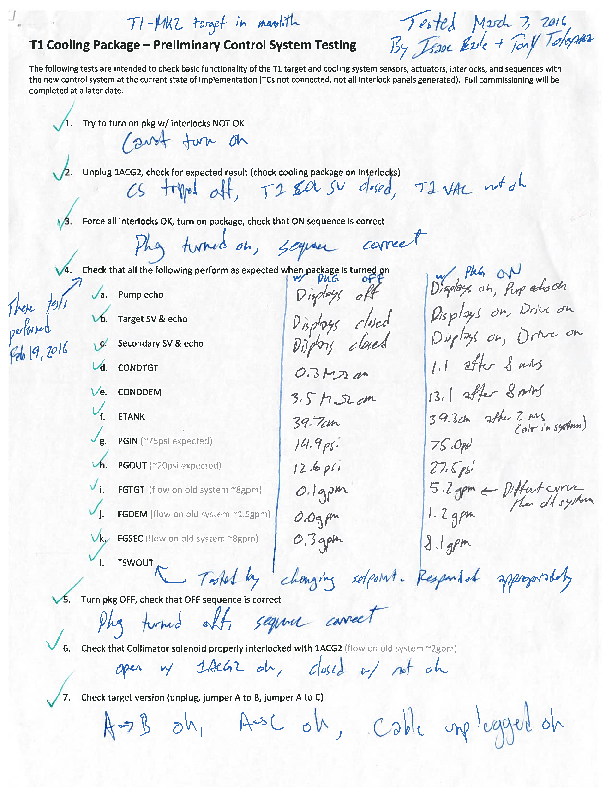 T1-MK2 target in monolith
Tested March 7, 2016
By Isaac Earle + Tony
T1 Cooling Package – Preliminary Control System Testing
The following tests are intended to check basic functionality of the T1 target and cooling system sensors, actuators, interlocks, and sequences with
the new control system at the current state of implementation (TCs not connected, not all interlock panels generated). Full commissioning will be
completed at a later date.
1. Try to turn on pkg w/ interlocks NOT OK
Can't turn on
2. Unplug 1ACG2, check for expected result (check cooling package on interlocks)
CS tripped off, T2 SV closed, T2 VAC not ok
3. Force all interlocks OK, turn on package, check that ON sequence is correct
Pkg turned on, sequence correct
4. Check that all the following perform as expected when package is turned on
These tests performed Feb 19, 2016
w/ PKG OFF w/ PKG ON
a. Pump echo Displays off Displays on, Pump echo on
b. Target SV & echo Displays closed Displays on, Drive on
c. Secondary SV & echo Displays closed Displays on, Drive on
d. CONDTGT 0.3 MΩcm 1.1 after 8 mins
e. CONDDEM 3.5 MΩcm 13.1 after 8 mins
f. ETANK 39.7cm 39.3cm after 2 min (air in system)
g. PGIN (~75psi expected) 14.9psi 75.0psi
h. PGOUT (~20psi expected) 12.6psi 27.5psi
i. FGTGT (flow on old system ~8gpm) 0.1gpm 5.2gpm ← Different curve than old system
j. FGDEM (flow on old system ~1.5gpm) 0.0gpm 1.2gpm
k. FGSEC (flow on old system ~8gpm) 0.3gpm 8.1gpm
l. TSWOUT
Tested by changing setpoint. Responded appropriately
5. Turn pkg OFF, check that OFF sequence is correct
Pkg turned off, sequence correct
6. Check that Collimator solenoid properly interlocked with 1ACG2 (flow on old system ~2gpm)
open w/ 1ACG2 ok, closed w/ not ok
7. Check target version (unplug, jumper A to B, jumper A to C)
A→B ok, A→C ok, Cable unplugged ok